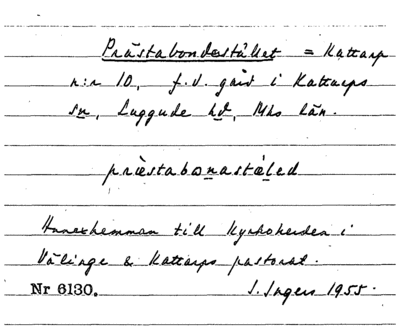 Prästabondestället = Kattarp
n:r 10, f.d. gård i Kattarps
sn, Luggude hd, Mhs län.
præstabonastæled
Annexhemman till Kyrkoherden i
Välinge & Kattarps pastorat.
Nr 6130. S. Ingers 1955.